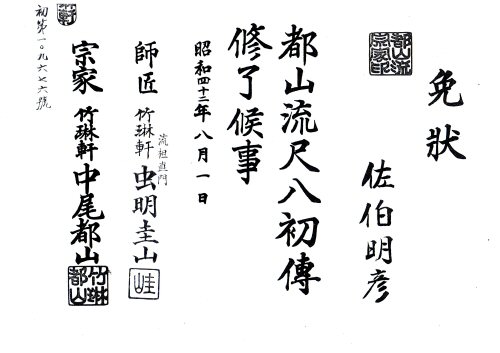 免狀
都山流
宗家印
佐伯明彦
都山流尺八初傳
修了候事
昭和四十二年八月一日
師匠 竹琳軒 流祖直門 虫明圭山
宗家 竹琳軒 中尾都山
竹琳
都山
初第一〇九六七六號